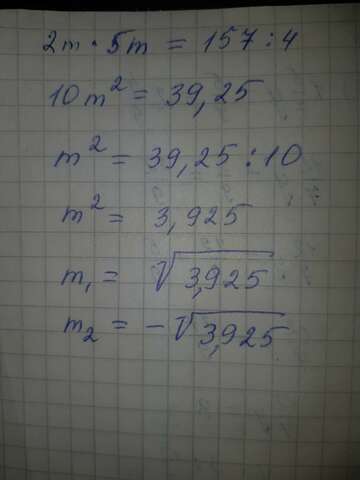 2m · 5m = 157 : 4
10m² = 39,25
m² = 39,25 : 10
m² = 3,925
m₁ = √3,925
m₂ = -√3,925